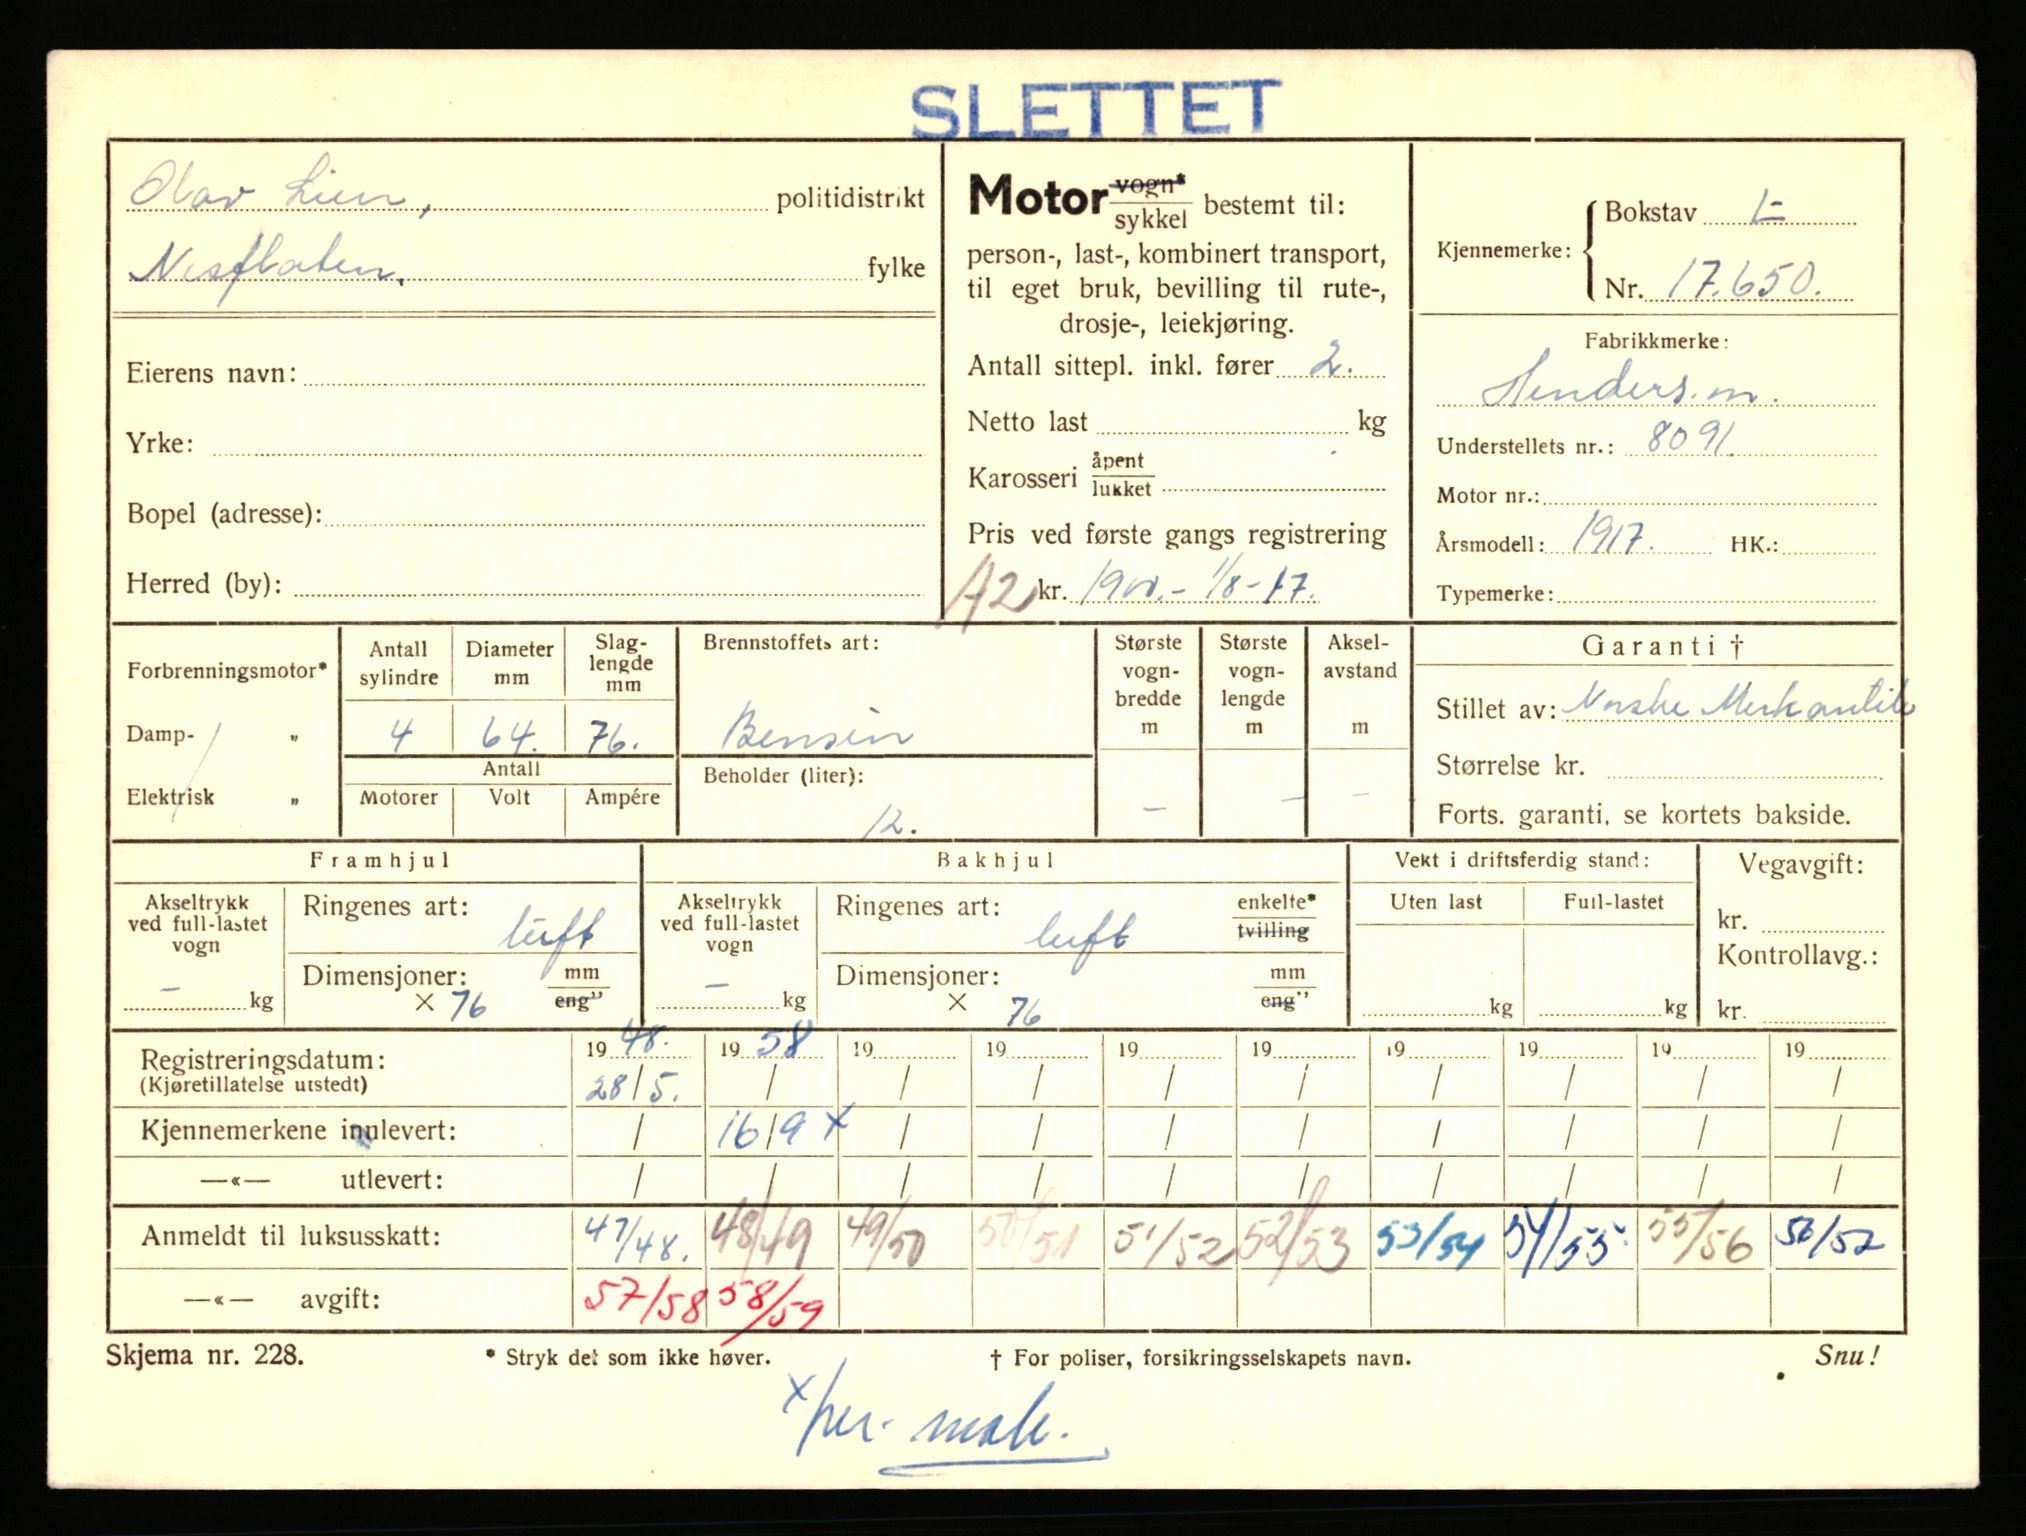 SLETTET
Olav Lien, politidistrikt
Nesflaten, fylke
Eierens navn:
Yrke:
Bopel (adresse):
Herred (by):
Motor vogn* sykkel bestemt til:
person-, last-, kombinert transport,
til eget bruk, bevilling til rute-,
drosje-, leiekjøring.
Antall sittepl. inkl. fører 2.
Netto last kg
Karosseri åpent lukket
Pris ved første gangs registrering
A2 kr. 1900.- 1/8-17.
Kjennemerke: Bokstav L-
Nr. 17.650.
Fabrikkmerke:
Henders.m.
Understellets nr.: 8091.
Motor nr.:
Årsmodell: 1917. HK.:
Typemerke:
Forbrenningsmotor*
Damp- "
Elektrisk "
Antall sylindre Diameter mm Slag-lengde mm
4 64. 76.
Antall
Motorer Volt Ampére
Brennstoffets art:
Bensin
Beholder (liter):
12.
Største vogn-bredde m Største vogn-lengde m Aksel-avstand m
– – –
Garanti †
Stillet av: Norske Merkantile
Størrelse kr.
Forts. garanti, se kortets bakside.
Framhjul
Akseltrykk ved full-lastet vogn
– kg
Ringenes art: luft
Dimensjoner: mm eng"
× 76
Bakhjul
Akseltrykk ved full-lastet vogn
– kg
Ringenes art: luft enkelte* tvilling
Dimensjoner: mm eng"
× 76
Vekt i driftsferdig stand:
Uten last Full-lastet
kg kg
Vegavgift:
kr.
Kontrollavg.:
kr.
Registreringsdatum: 19 48. 19 58 19 19 19 19 19 19 19 19
(Kjøretillatelse utstedt) 28/5. / / / / / / / / /
Kjennemerkene innlevert: / 16/9 x / / / / / / / /
—«— utlevert: / / / / / / / / / /
Anmeldt til luksusskatt: 47/48. 48/49 49/50 50/51 51/52 52/53 53/54 54/55. 55/56 56/57
—«— avgift: 57/58 58/59
Skjema nr. 228. * Stryk det som ikke høver. † For poliser, forsikringsselskapets navn. Snu!
x/